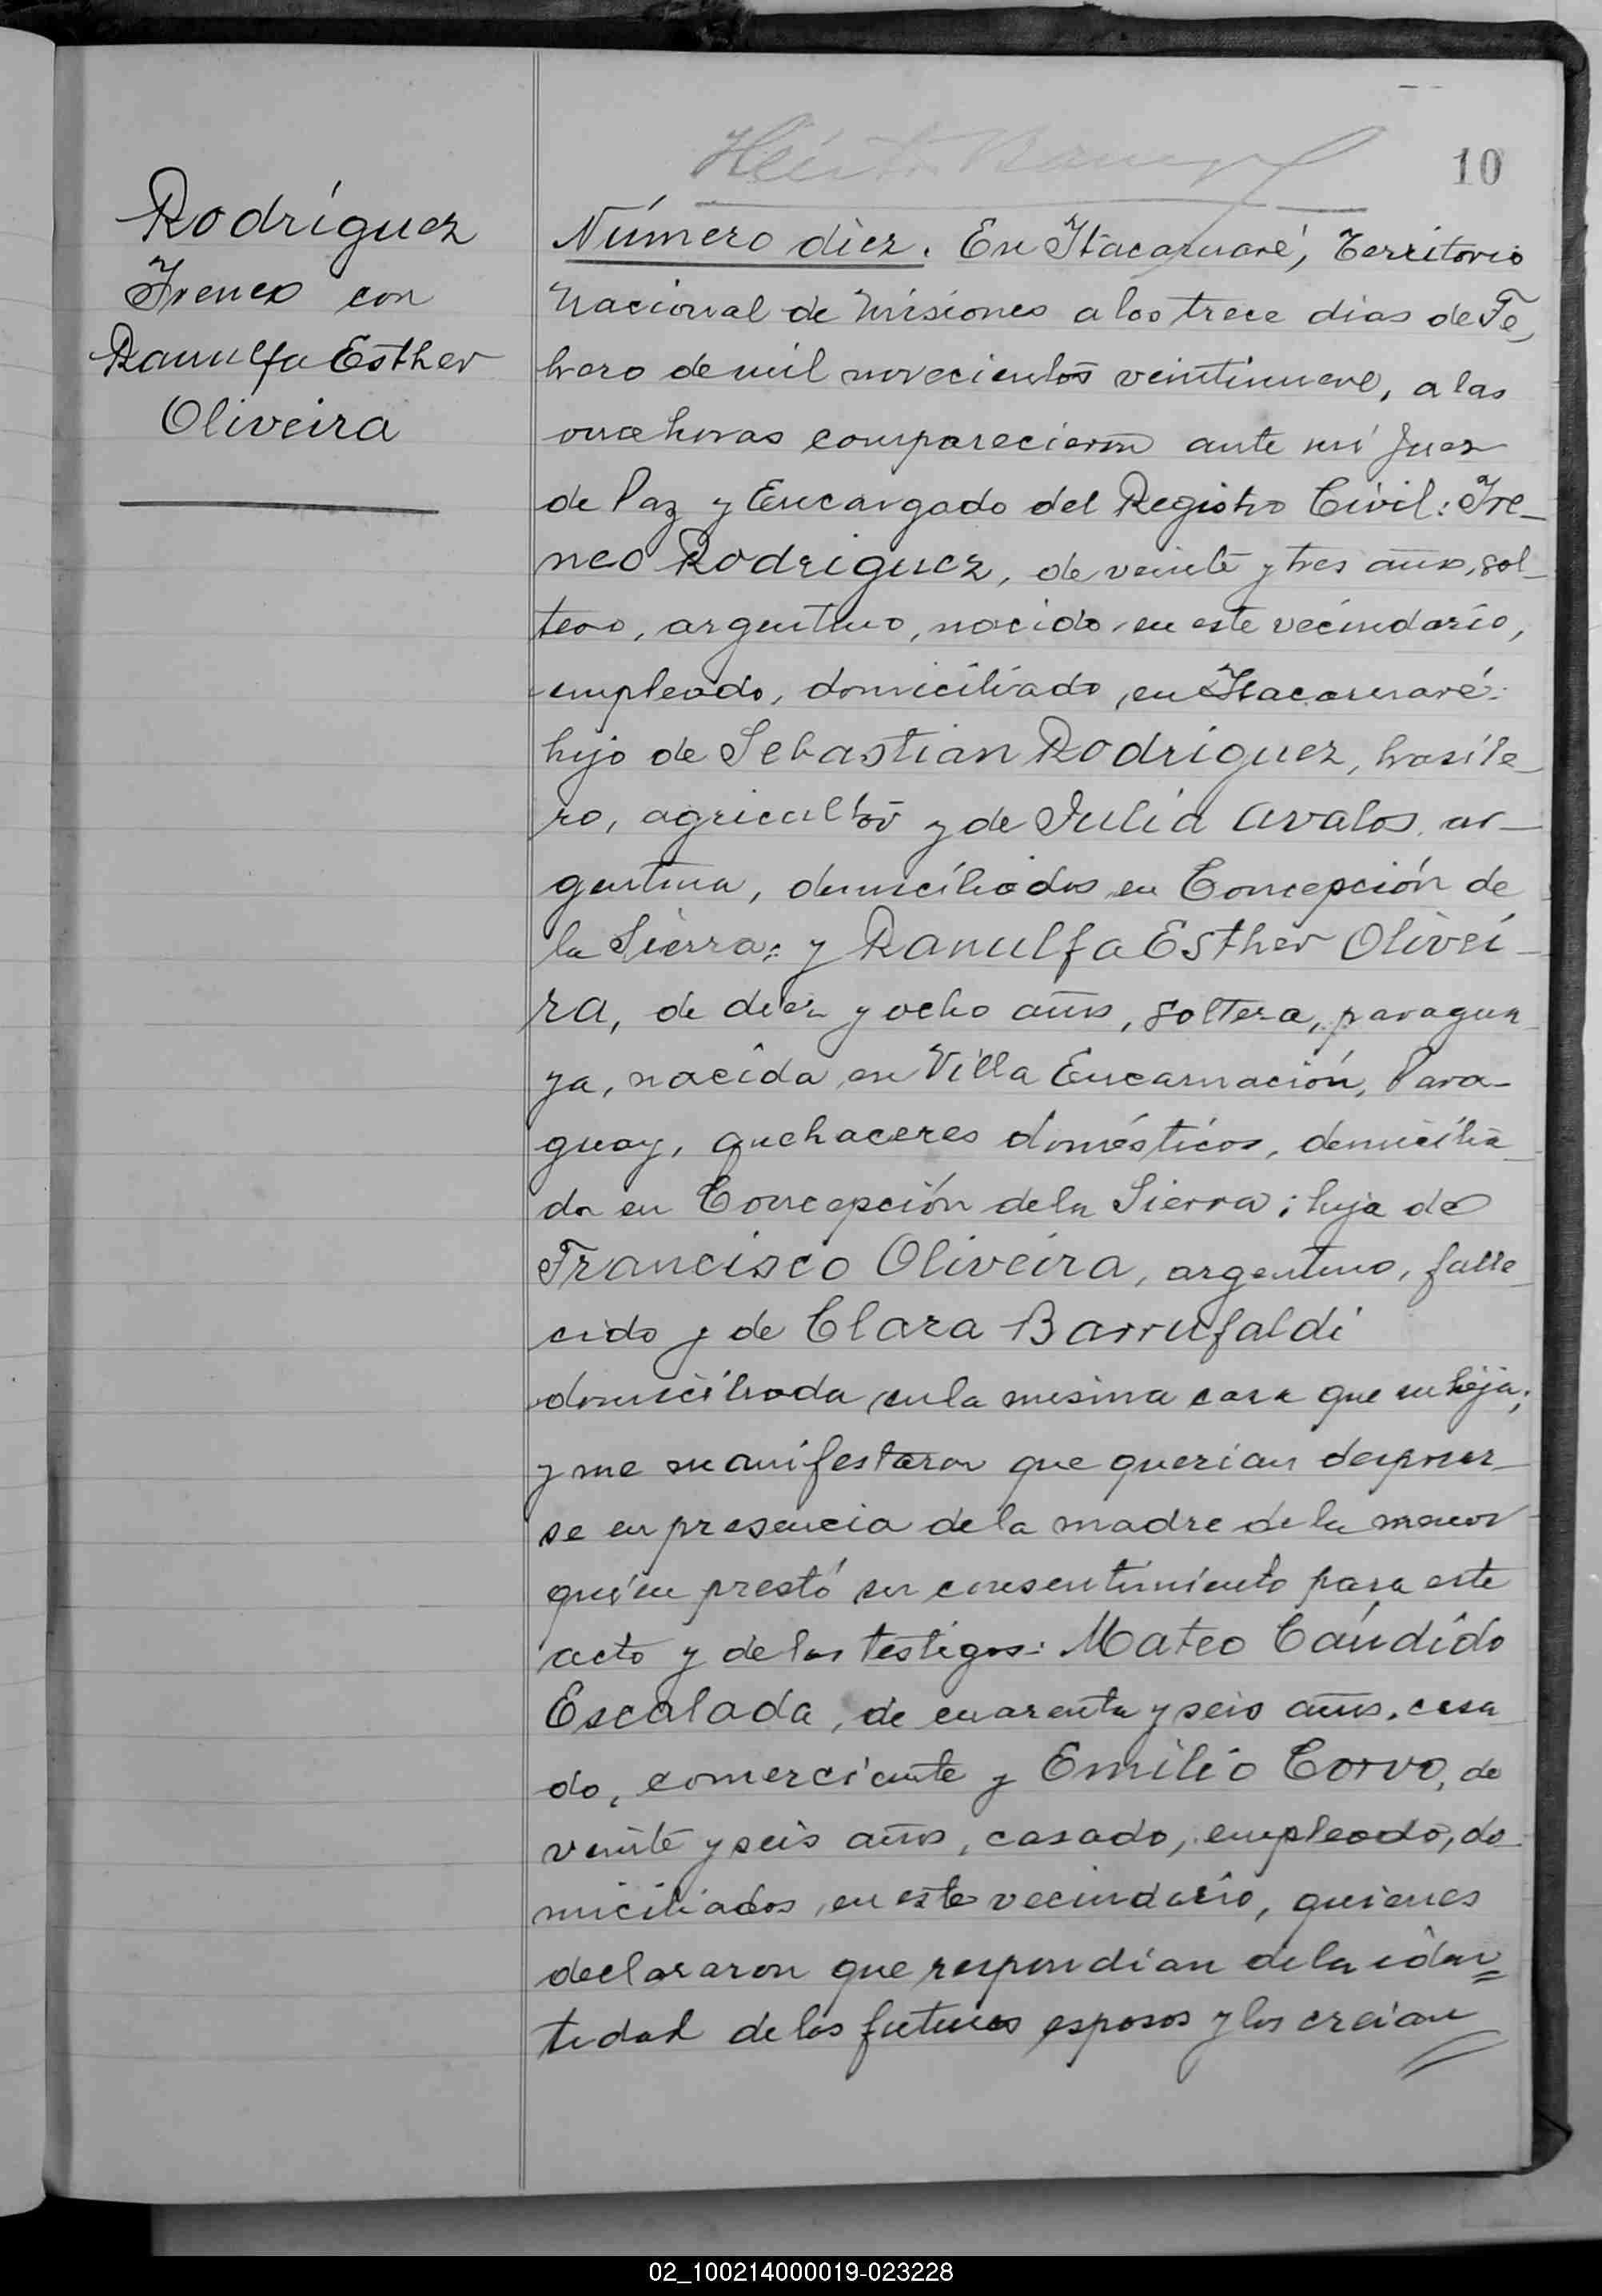 10
Rodríguez
Ireneo con
Ranulfa Esther
Oliveira
Número diez. En Itacaruaré, Territorio
Nacional de Misiones a los trece dias de Fe_
brero de mil novecientos veintinueve, a las
once horas comparecieron ante mí Juez
de Paz y Encargado del Registro Civil: Ire_
neo Rodriguez, de veinte y tres años, sol_
tero, argentino, nacido en este vecindario,
empleado, domiciliado en Itacaruaré:
hijo de Sebastian Rodriguez, brasile_
ro, agricultor y de Julia Avalos, ar_
gentina, domiciliados en Concepción de
la Sierra; y Ranulfa Esther Olivei_
ra, de diez y ocho años, soltera, paragua_
ya, nacida en Villa Encarnación, Para_
guay, quehaceres domésticos, domicilia_
da en Concepción de la Sierra; hija de
Francisco Oliveira, argentino, falle_
cido y de Clara Barrufaldi
domiciliada en la misma casa que su hija;
y me manifestaron que querian desposar_
se en presencia de la madre de la menor
quien prestó su consentimiento para este
acto y de los testigos: Mateo Cándido
Escalada, de cuarenta y seis años, casa_
do, comerciante y Emilio Corvo, de
veinte y seis años, casado, empleado, do_
miciliados en este vecindario, quienes
declararon que respondían de la iden=
tidad de los futuros esposos y los creían
02_100214000019-023228